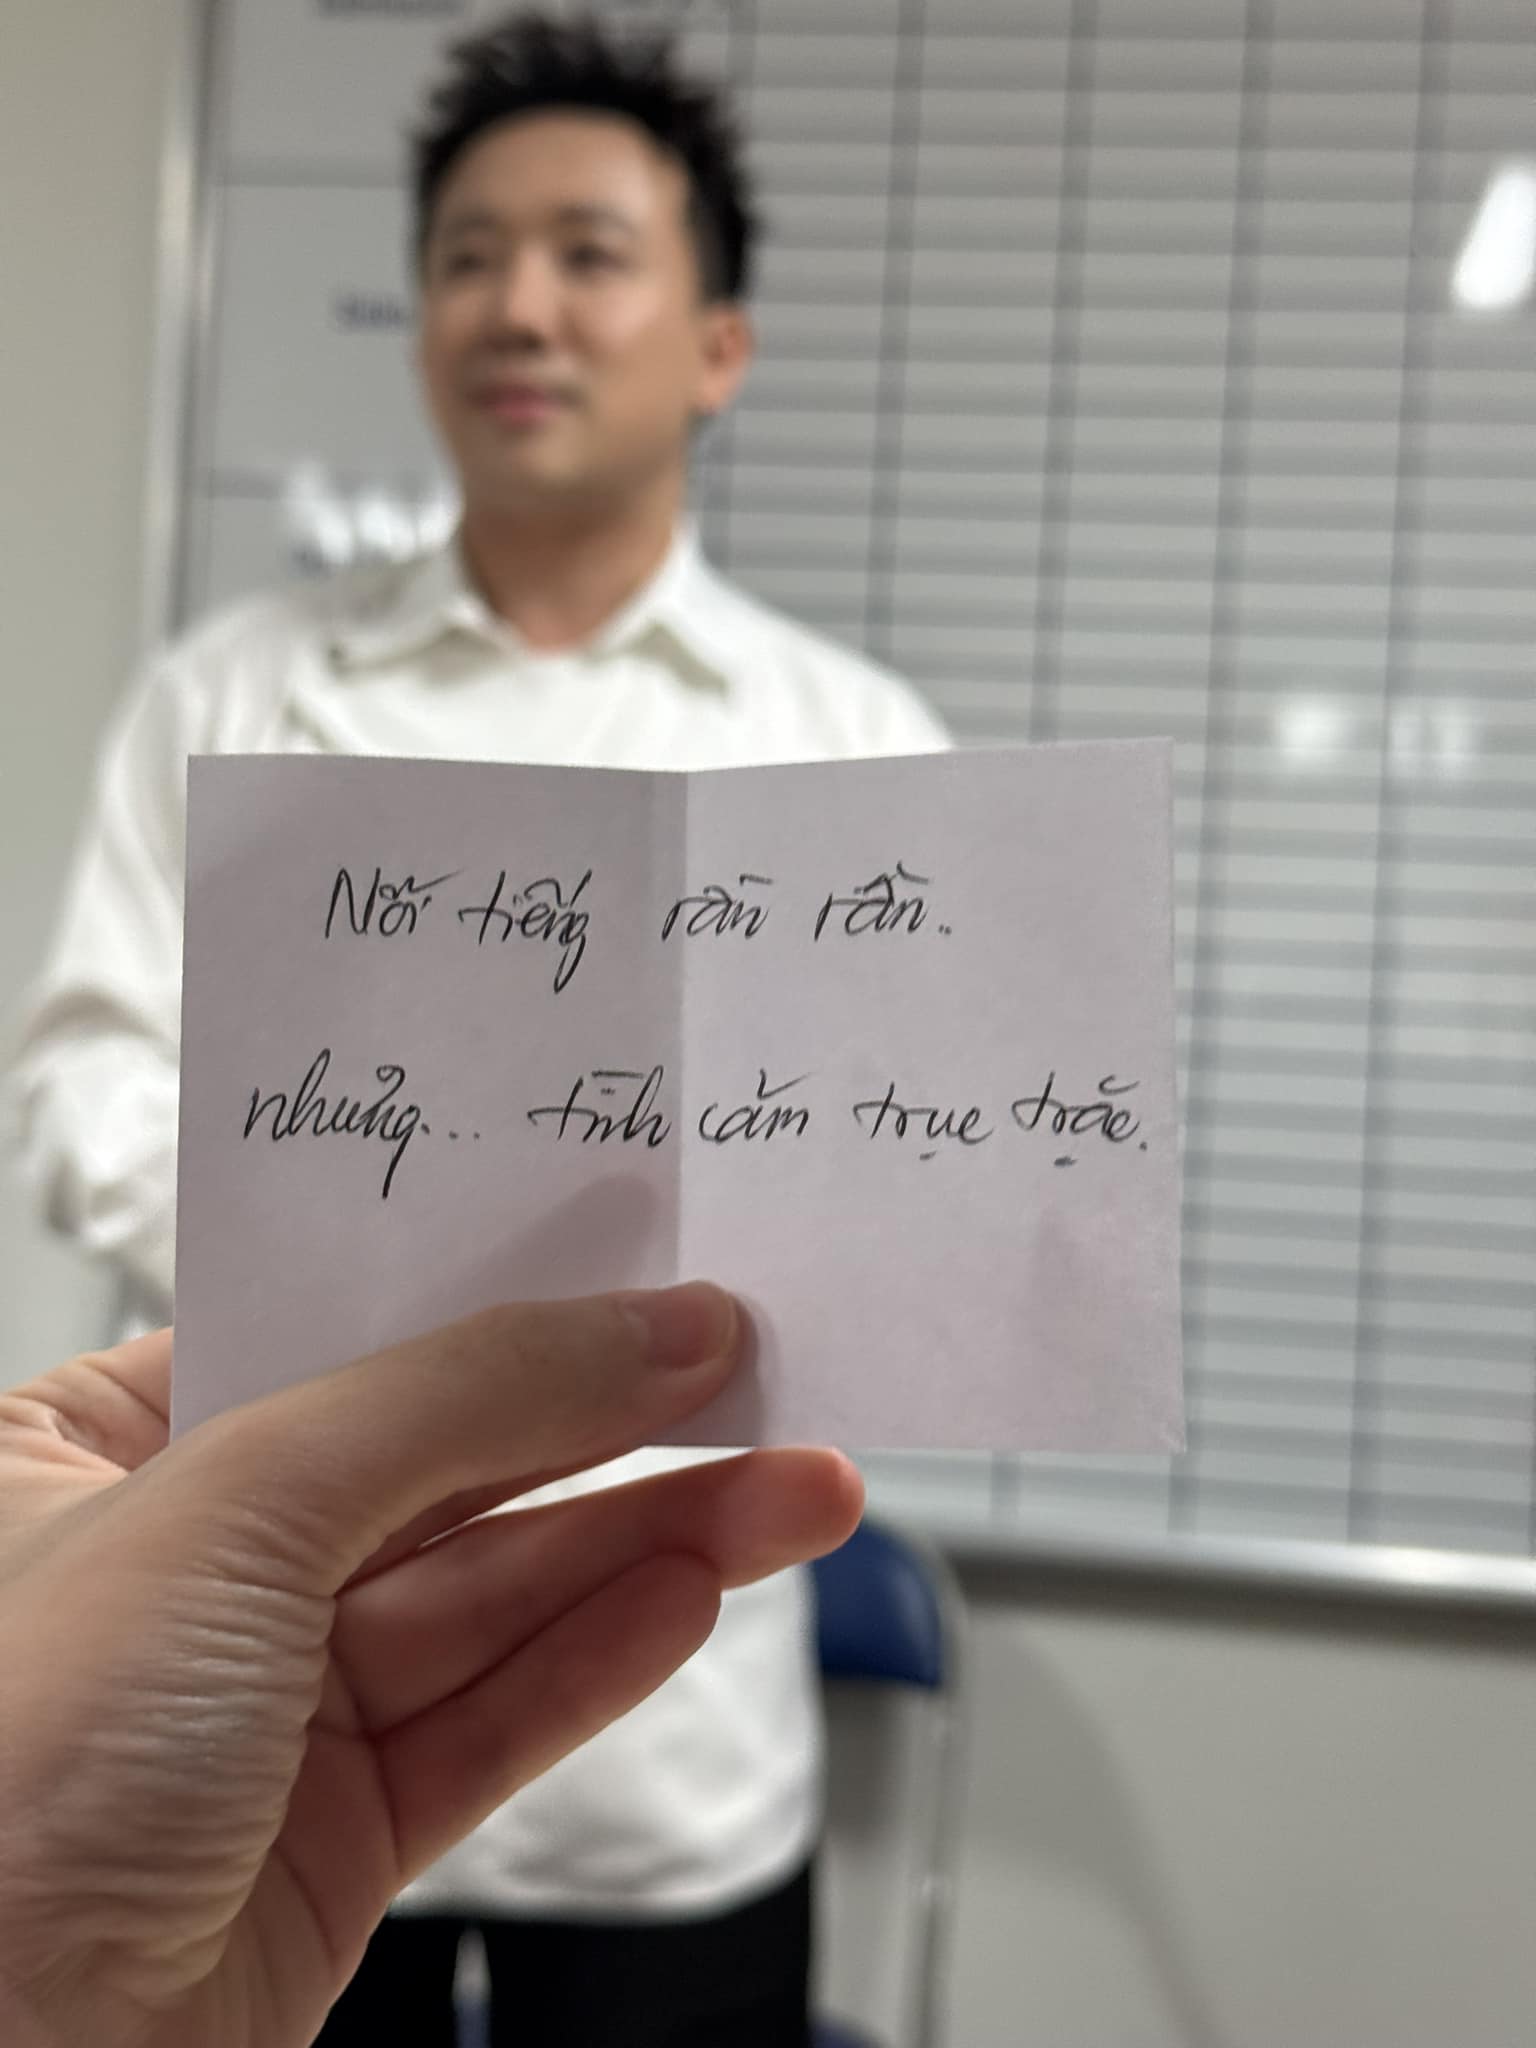 Nổi tiếng rần rần..
nhưng... tình cảm trục trặc.